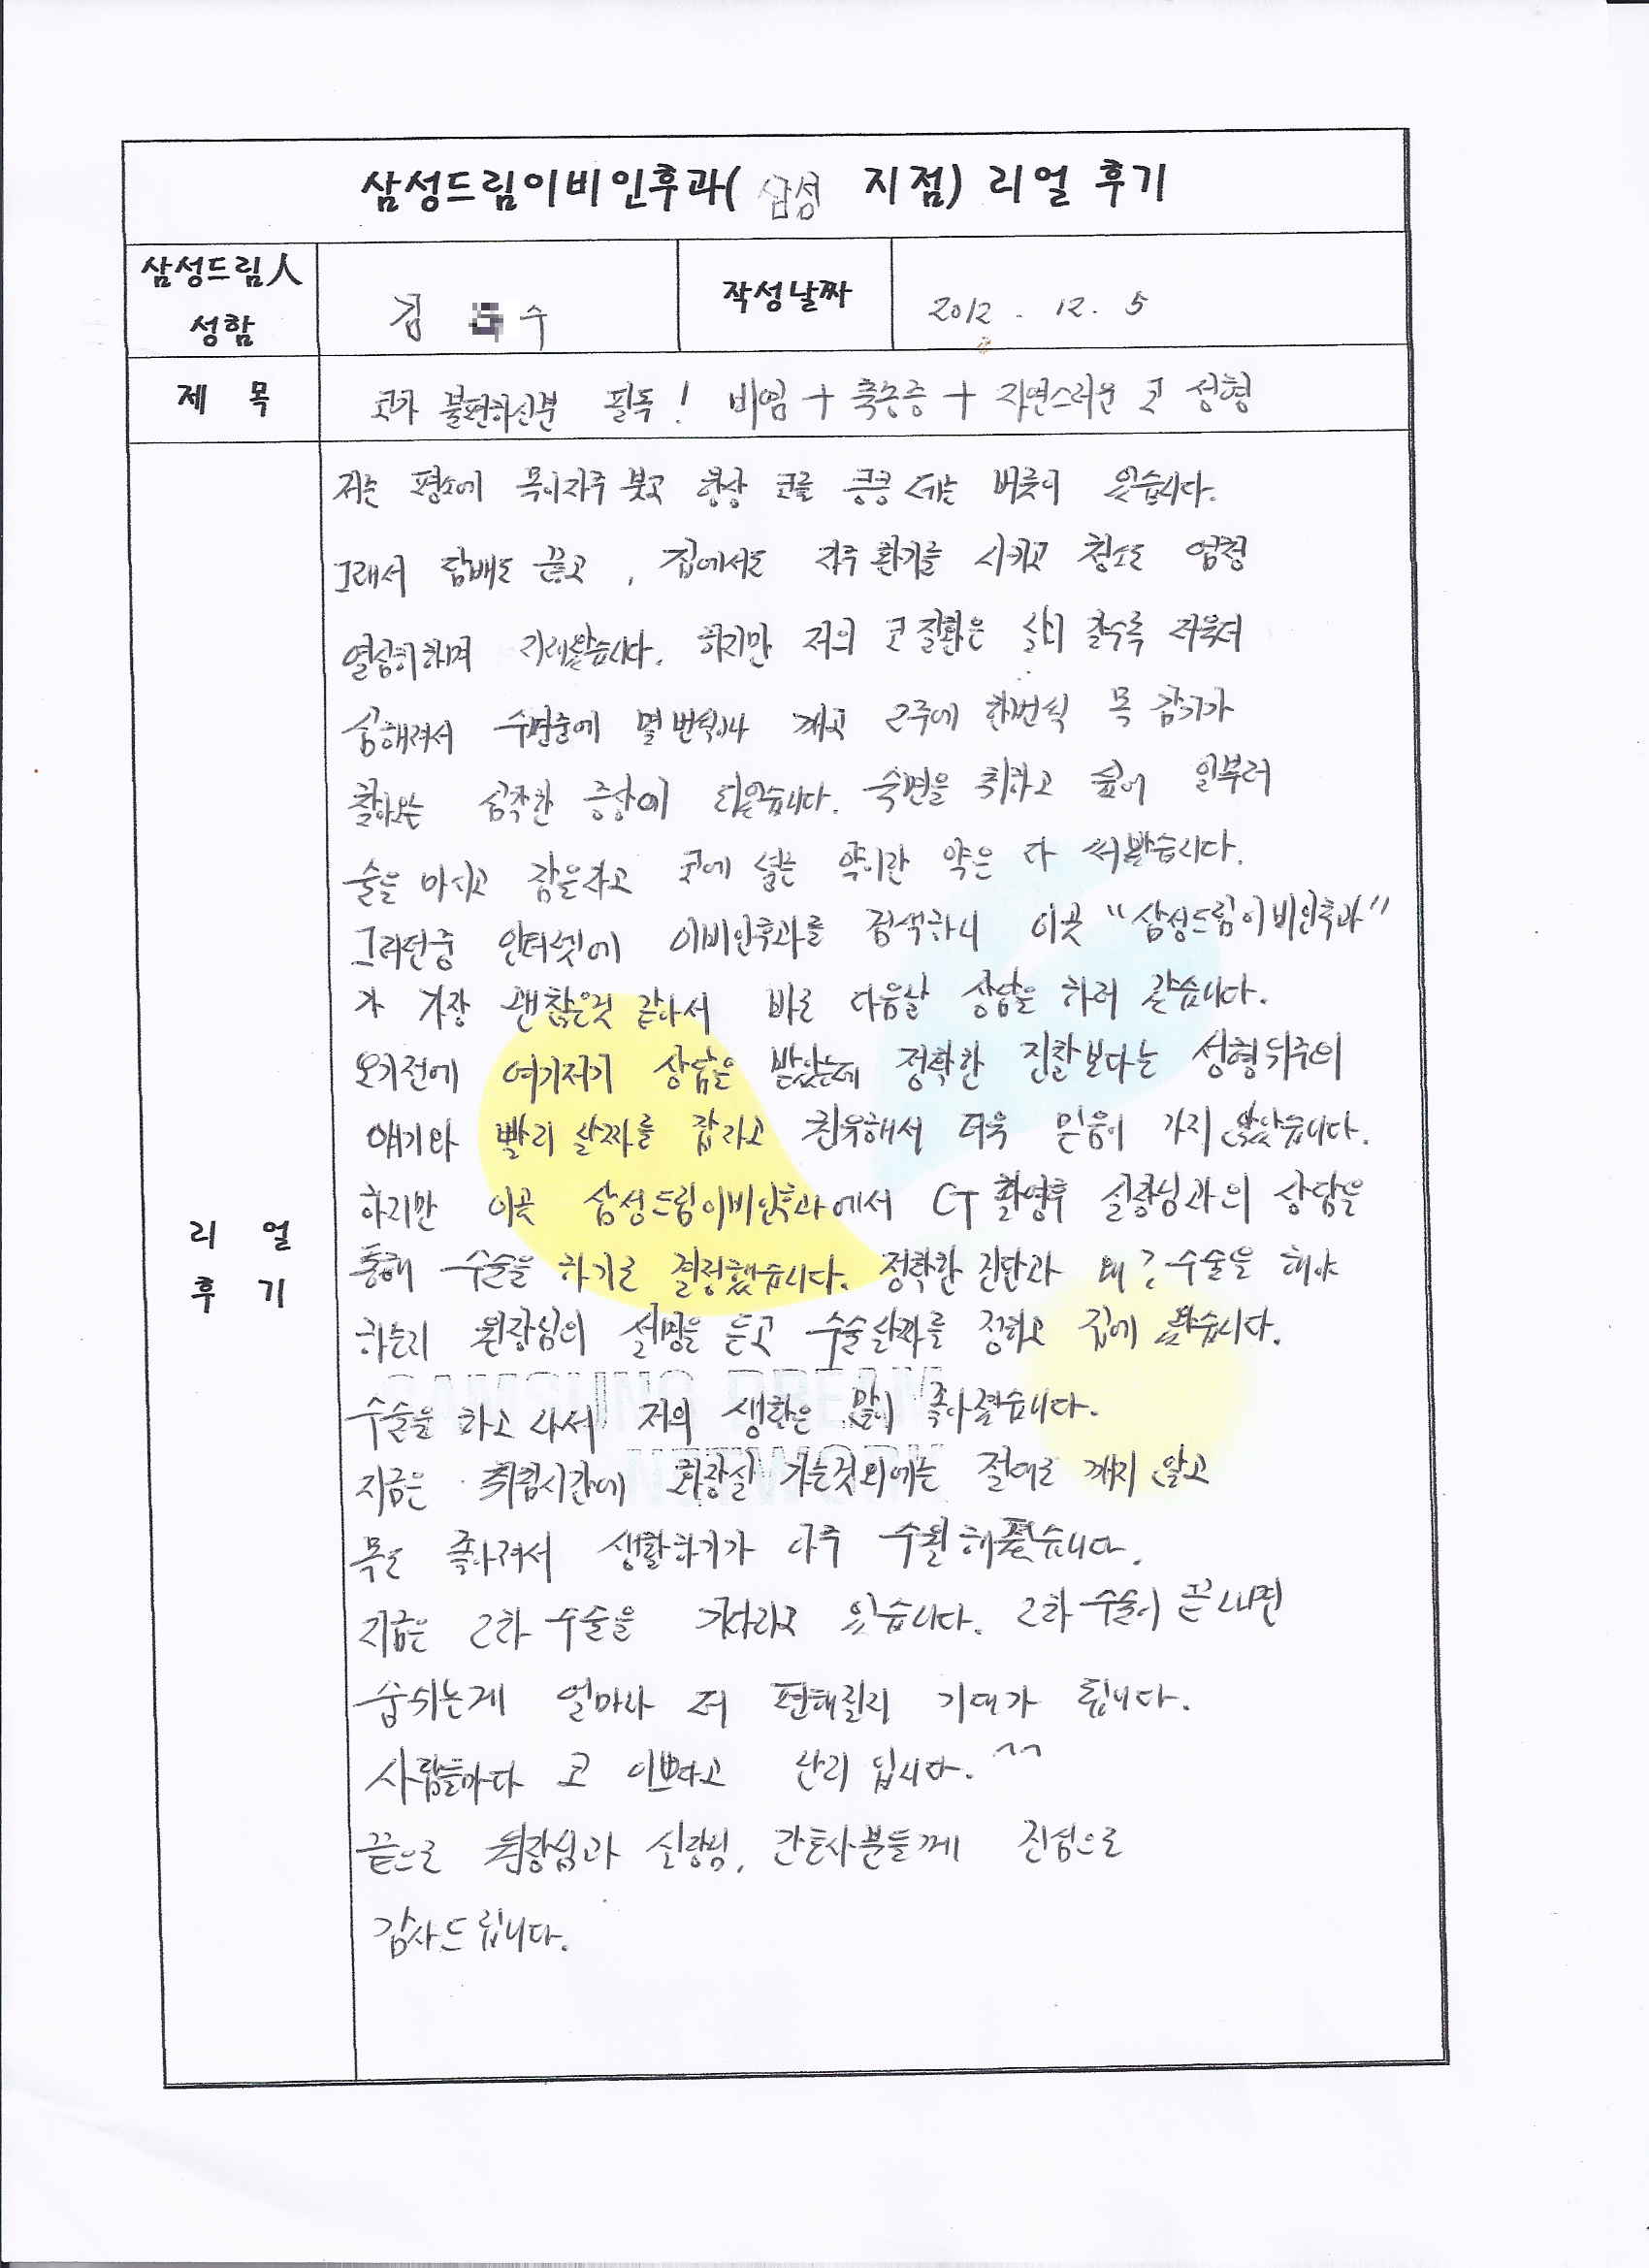 삼성드림이비인후과( 삼성 지점) 리얼 후기
삼성드림人 성함
김 수
작성날짜
2012. 12. 5
제 목
코가 불편하신분 필독! 비염 + 축농증 + 자연스러운 코 성형
리 얼 후 기
저는 평소에 목이자주 붓고 항상 코를 킁킁 대는 버릇이 있습니다.
그래서 담배도 끊고, 집에서도 자주 환기를 시키고 청소도 엄청
열심히하며 지내왔습니다. 하지만 저의 코 질환은 날이 갈수록 더욱더
심해져서 수면중에 몇 번씩이나 깨고 2주에 한번씩 목 감기가
찾아오는 심각한 증상이 되었습니다. 숙면을 취하고 싶어 일부러
술을 마시고 잠을자고 코에 넣는 약이란 약은 다 써봤습니다.
그러던중 인터넷에 이비인후과를 검색하니 이곳 "삼성드림이비인후과"
가 가장 괜찮은것 같아서 바로 다음날 상담을 하러 갔습니다.
오기전에 여기저기 상담을 받았는데 정확한 진찰보다는 성형위주의
얘기와 빨리 날짜를 잡자고 권유해서 더욱 믿음이 가지 않았습니다.
하지만 이곳 삼성드림이비인후과에서 CT 촬영후 실장님과의 상담을
통해 수술을 하기로 결정했습니다. 정확한 진단과 왜? 수술을 해야
하는지 원장님의 설명을 듣고 수술날짜를 정하고 집에 왔습니다.
SAMSUNG DREAM
NETWORK
수술을 하고 나서 저의 생활은 많이 좋아졌습니다.
지금은 취침시간에 화장실 가는것외에는 절대로 깨지 않고
목도 좋아져서 생활하기가 아주 수월해졌습니다.
지금은 2차 수술을 기다리고 있습니다. 2차 수술이 끝나면
숨쉬는게 얼마나 더 편해질지 기대가 됩니다.
사람들마다 코 이쁘다고 난리 입니다. ^^
끝으로 원장님과 실장님, 간호사분들께 진심으로
감사드립니다.